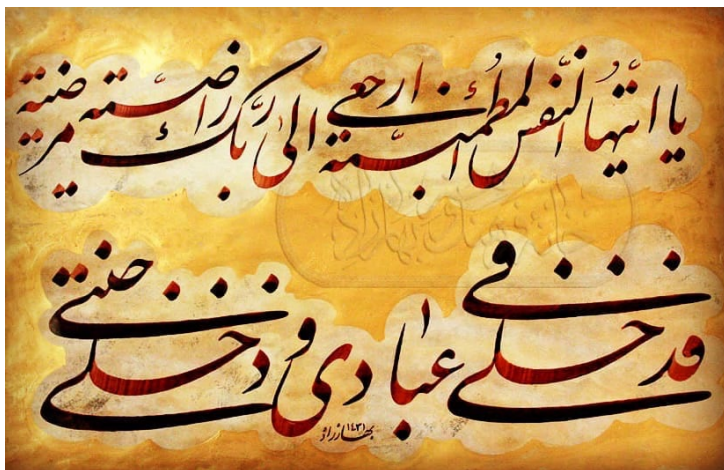 یا ایتها النفس المطمئنة ارجعی الی ربک راضیة مرضیة
فدخلی فی عبادی ودخلی جنتی
۱۴۳۱